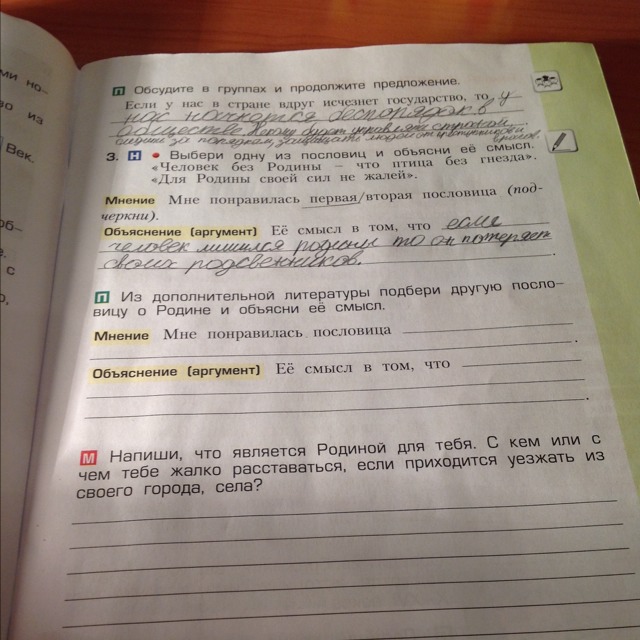 ми но-
во из
Век.
об-
е.
с
о,
П Обсудите в группах и продолжите предложение.
Если у нас в стране вдруг исчезнет государство, то у
нас начнётся беспорядок в
обществе. Некому будет управлять страной,
следить за порядком, защищать людей от преступников и врагов.
3. Н • Выбери одну из пословиц и объясни её смысл.
«Человек без Родины – что птица без гнезда».
«Для Родины своей сил не жалей».
Мнение Мне понравилась первая/вторая пословица (под-
черкни).
Объяснение (аргумент) Её смысл в том, что если
человек лишился родины то он потеряет
своих родсвенников.
П Из дополнительной литературы подбери другую посло-
вицу о Родине и объясни её смысл.
Мнение Мне понравилась пословица
Объяснение (аргумент) Её смысл в том, что
М Напиши, что является Родиной для тебя. С кем или с
чем тебе жалко расставаться, если приходится уезжать из
своего города, села?